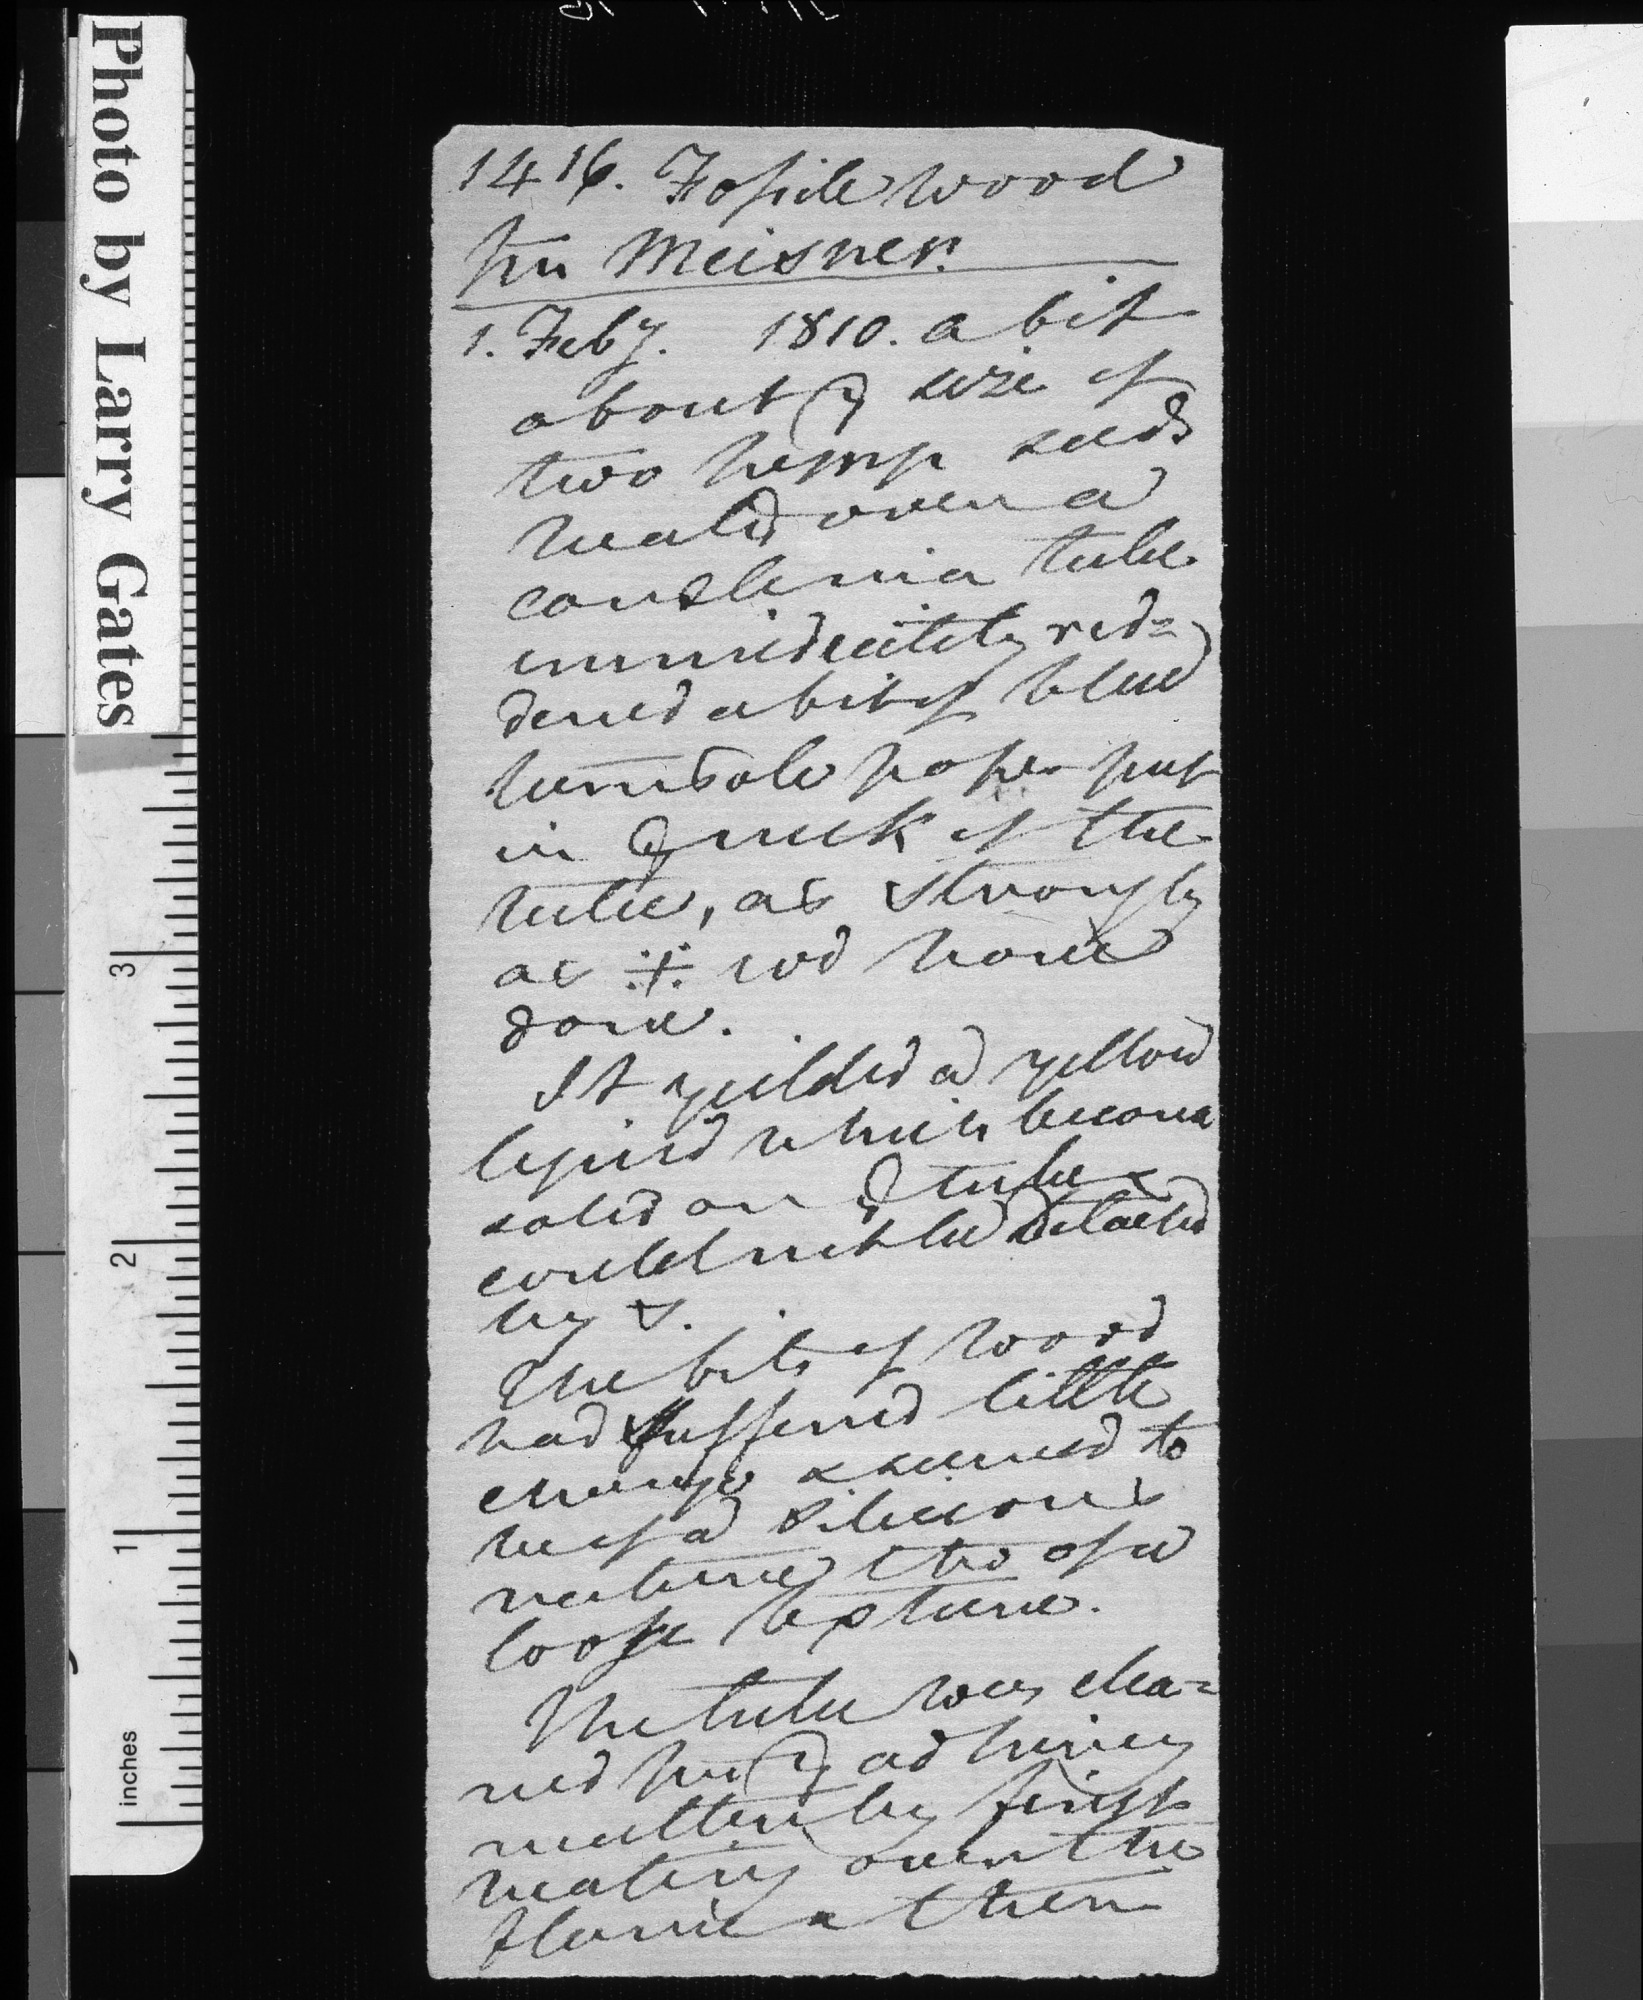 Photo by Larry Gates
3
2
1
inches
1416. Fossile wood
fm Meisner.
1. Feby. 1810. a bit
about ye size of
two hemp seeds
heated over a
candle in a tube
immidiately red=
dened a bit of blue
turnsole paper put
in ye neck of the
tube, as strongly
as wd have
done.
It yeilded a yellow
liquid which become
solid on ye tube &
could not be detached
by
The bits of wood
had suffered little
change & seemed to
be of a silicious
nature tho of a
loose texture.
The tube was clea=
ned fm ye adhering
matter by first
heating over the
flame & then